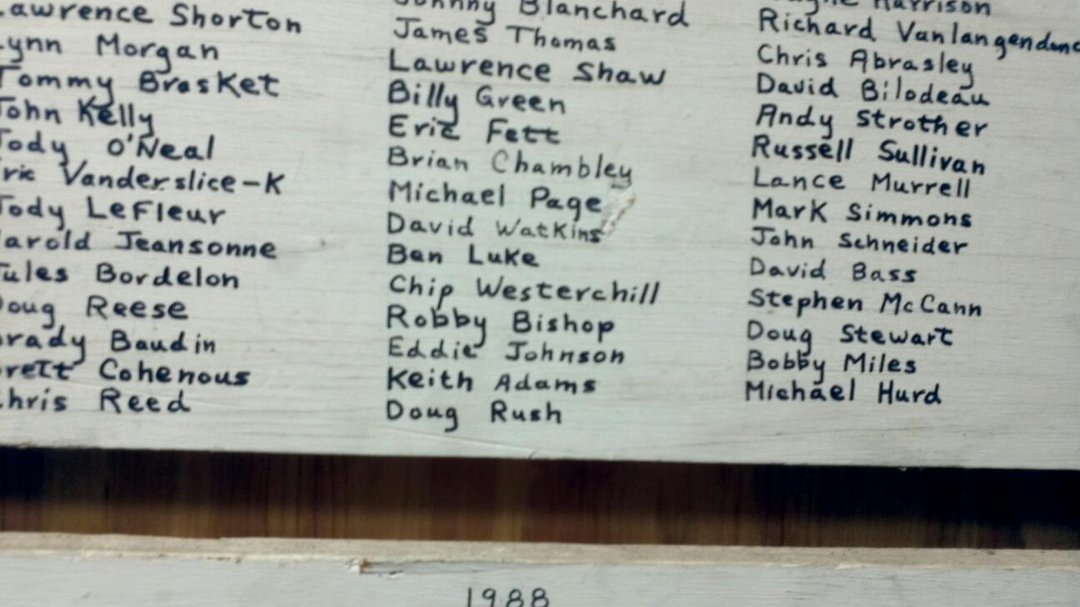 Lawrence Shorton
Lynn Morgan
Tommy Brasket
John Kelly
Jody O'Neal
Eric Vanderslice-K
Jody LeFleur
Harold Jeansonne
Jules Bordelon
Doug Reese
Brady Baudin
Brett Cohenous
Chris Reed
Johnny Blanchard
James Thomas
Lawrence Shaw
Billy Green
Eric Fett
Brian Chambley
Michael Page
David Watkins
Ben Luke
Chip Westerchill
Robby Bishop
Eddie Johnson
Keith Adams
Doug Rush
Harrison
Richard
Chris Abrasley
David Bilodeau
Andy Strother
Russell Sullivan
Lance Murrell
Mark Simmons
John Schneider
David Bass
Stephen McCann
Doug Stewart
Bobby Miles
Michael Hurd
1988